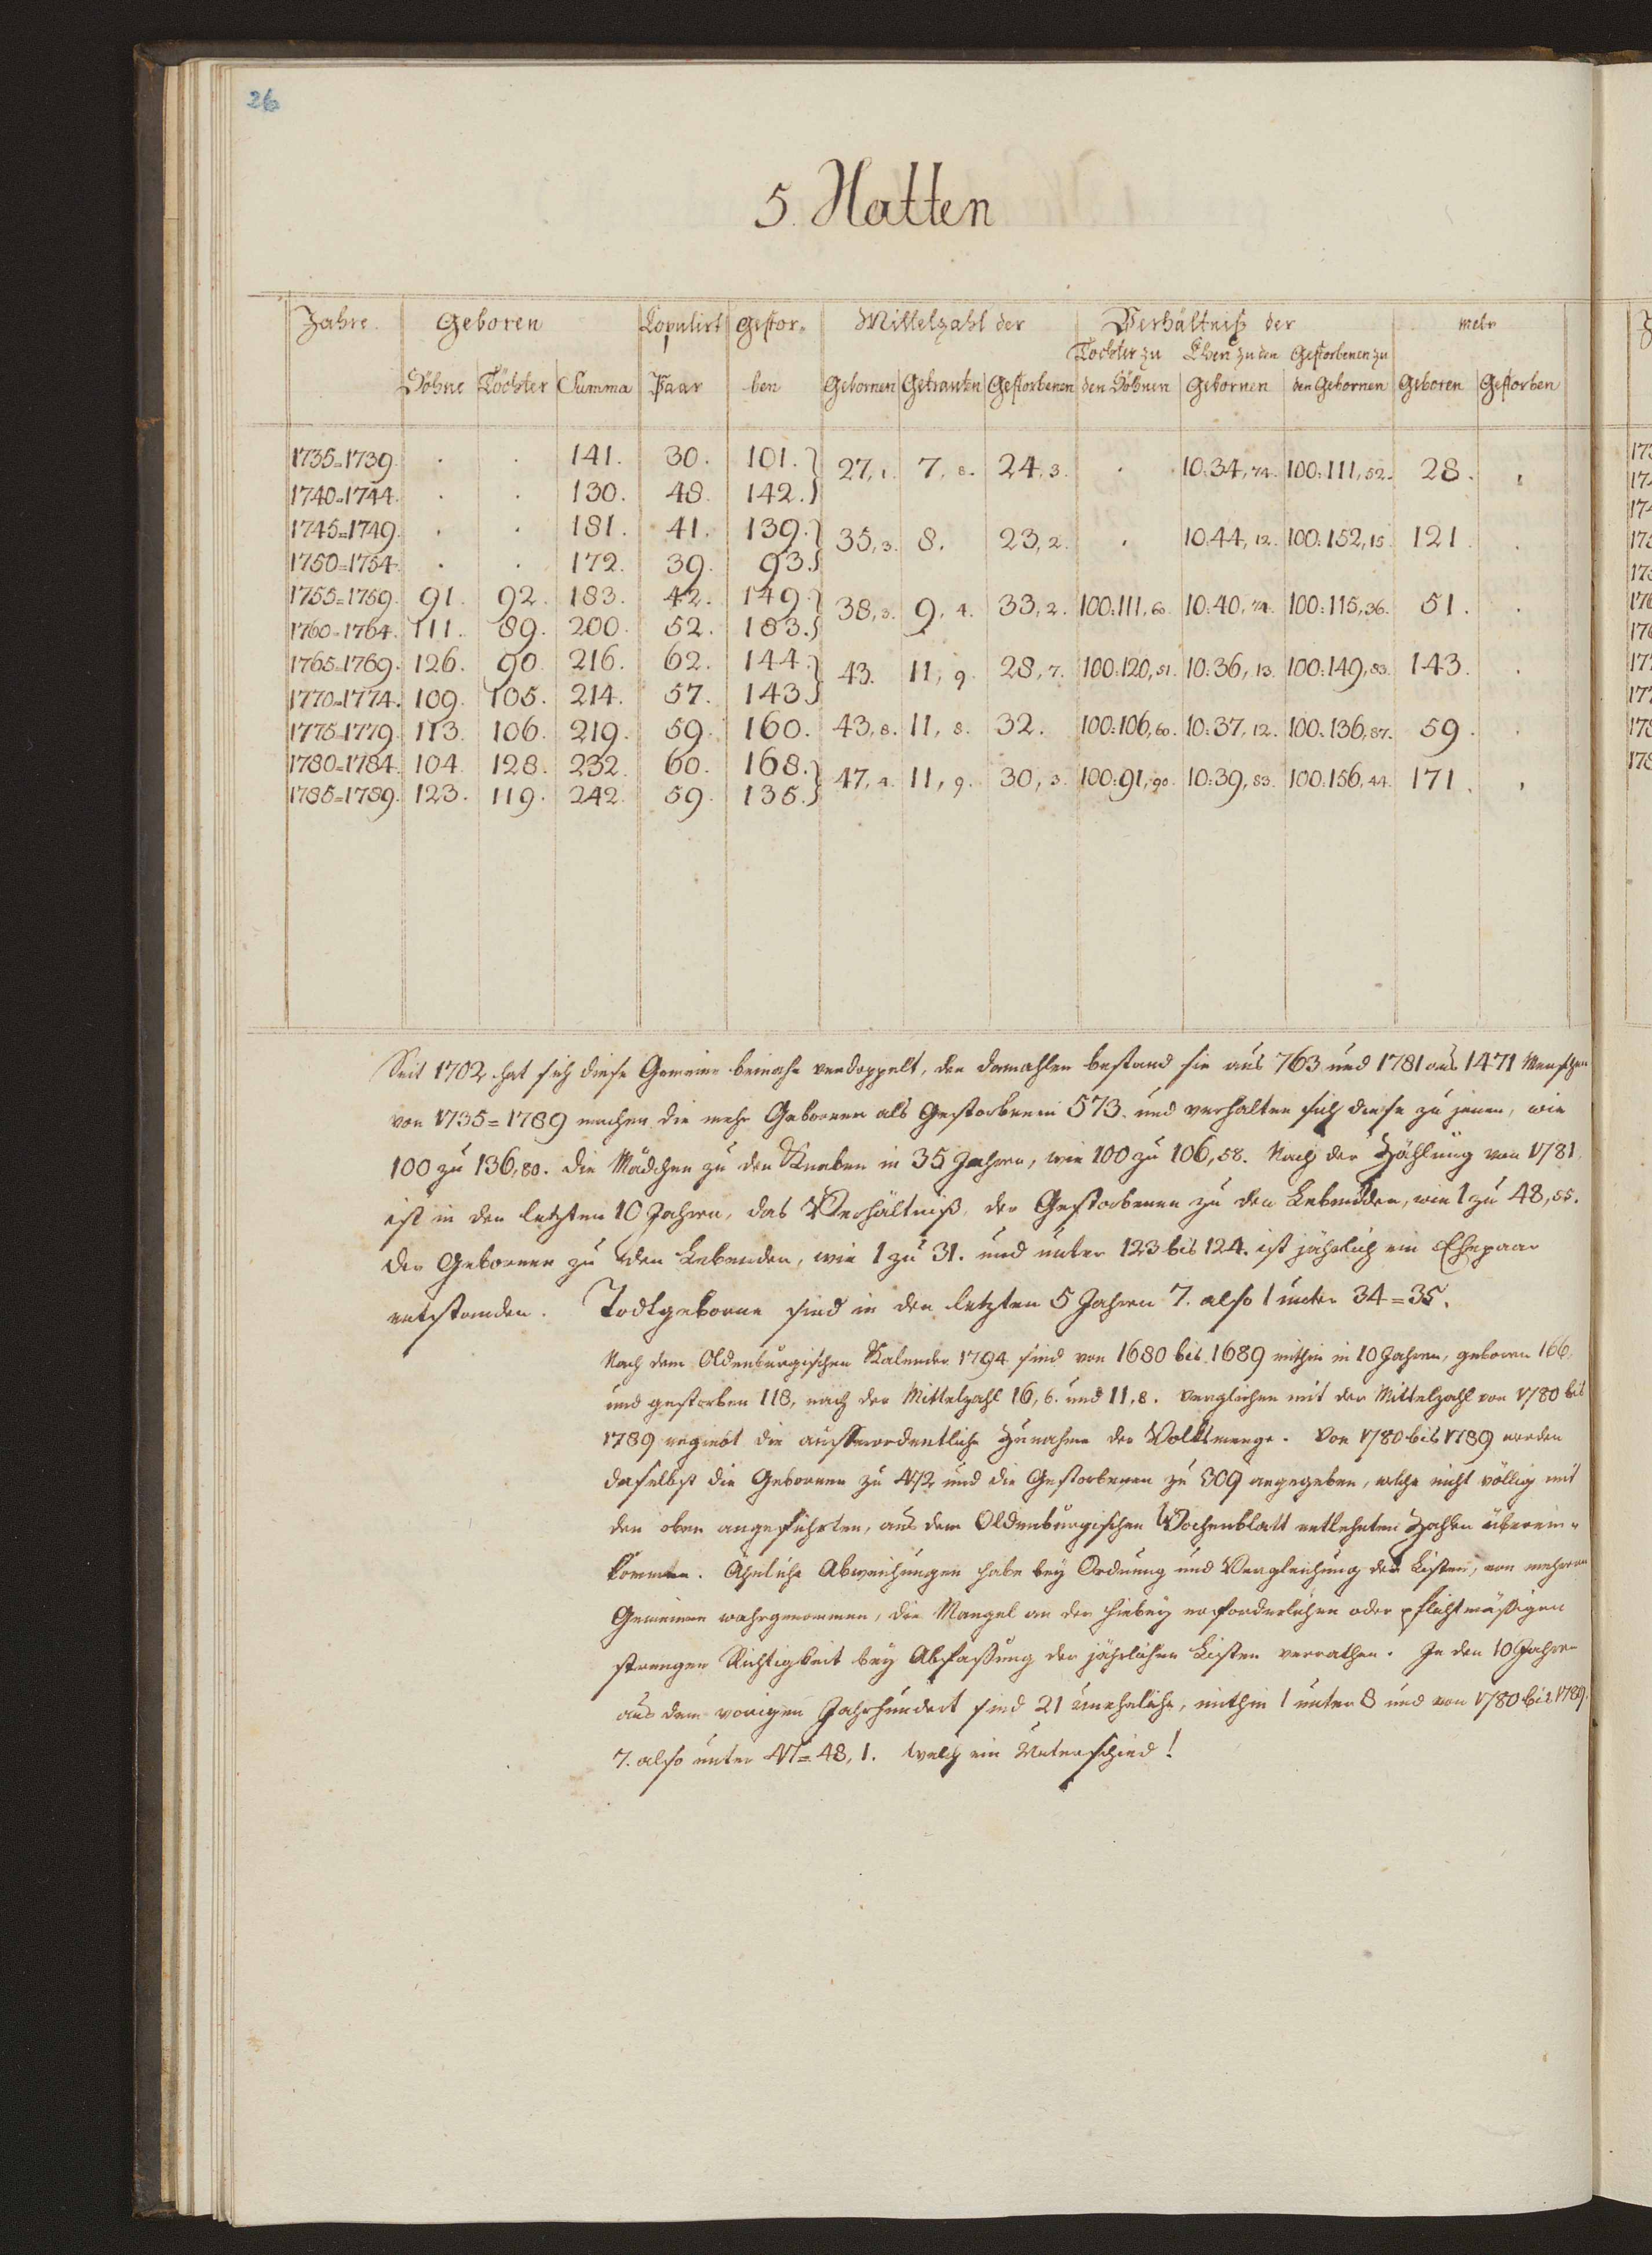 26
5. Hatten
Jahre. Geboren Copulirt Gestor= Mittelzahl der Verhältniß der mehr
Töchter zu Ehen zu den Gestorbenen zu
Söhne Töchter Summa Paar ben Gebornen Getrauten Gestorbenen den Söhnen Gebornen den Gebornen Geboren Gestorben
1735=1739. . . 141. 30. 101. 27,1. 7,8. 24,3. . 10:34,74. 100:111,52. 28. .
1740=1744. . . 130. 48. 142.
1745=1749. . . 181. 41. 139. 35,3. 8. 23,2. . 10:44,12. 100:152,15. 121. .
1750=1754. . . 172. 39. 93.
1755=1759. 91. 92. 183. 42. 149. 38,3. 9,4. 33,2. 100:111,60. 10:40,74. 100:115,36. 51. .
1760=1764. 111. 89. 200. 52. 183.
1765=1769. 126. 90. 216. 62. 144. 43. 11,9. 28,7. 100:120,51. 10:36,13. 100:149,83. 143. .
1770=1774. 109. 105. 214. 57. 143.
1775=1779. 113. 106. 219. 59. 160. 43,8. 11,8. 32. 100:106,60. 10:37,12. 100:136,87. 59. .
1780=1784. 104. 128. 232. 60. 168. 47,4. 11,9. 30,3. 100:91,90. 10:39,83. 100:156,44. 171. .
1785=1789. 123. 119. 242. 59. 135.
Seit 1702 hat sich diese Gemeine beinahe verdoppelt, den damahlen bestand sie aus 763 und 1781 aus 1471 Menschen
von 1735=1789 machen die mehr Gebornen als Gestorbenen 573. und verhalten sich diese zu jenen, wie
100 zu 136,80. die Mädchen zu den Knaben in 35 Jahren, wie 100 zu 106,58. Nach der Zählung von 1781
ist in den letzten 10 Jahren, das Verhältniß, der Gestorbenen zu den Lebenden, wie 1 zu 48,55.
der Gebornen zu den Lebenden, wie 1 zu 31. und unter 123 bis 124. ist jährlich ein Ehepaar
entstanden. Todtgeborne sind in den letzten 5 Jahren 7. also 1 unter 34=35.
Nach dem Oldenburgischen Kalender 1794 sind von 1680 bis 1689 mithin in 10 Jahren, geboren 166.
und gestorben 118, nach der Mittelzahl 16,6. und 11,8. verglichen mit der Mittelzahl von 1780 bis
1789 ergiebt die ausserordentliche Zunahme der Volksmenge. Von 1780 bis 1789 werden
daselbst die Gebornen zu 472 und die Gestorbenen zu 309 angegeben, welche nicht völlig mit
den oben angeführten, aus dem Oldenburgischen Wochenblatt entlehnten Zahlen überein=
kommen. Ähnliche Abweichungen habe bey Ordnung und Vergleichung der Listen, von mehrern
Gemeinen wahrgenommen, die Mangel an der hiebey erforderlichen oder pflichtmäßigen
strengen Richtigkeit bey Abfaßung der jährlichen Listen verrathen. In den 10 Jahren
aus dem vorigen Jahrhundert sind 21 uneheliche, mithin 1 unter 8 und von 1780 bis 1789.
7. also unter 47=48, 1. Welch ein Unterschied!